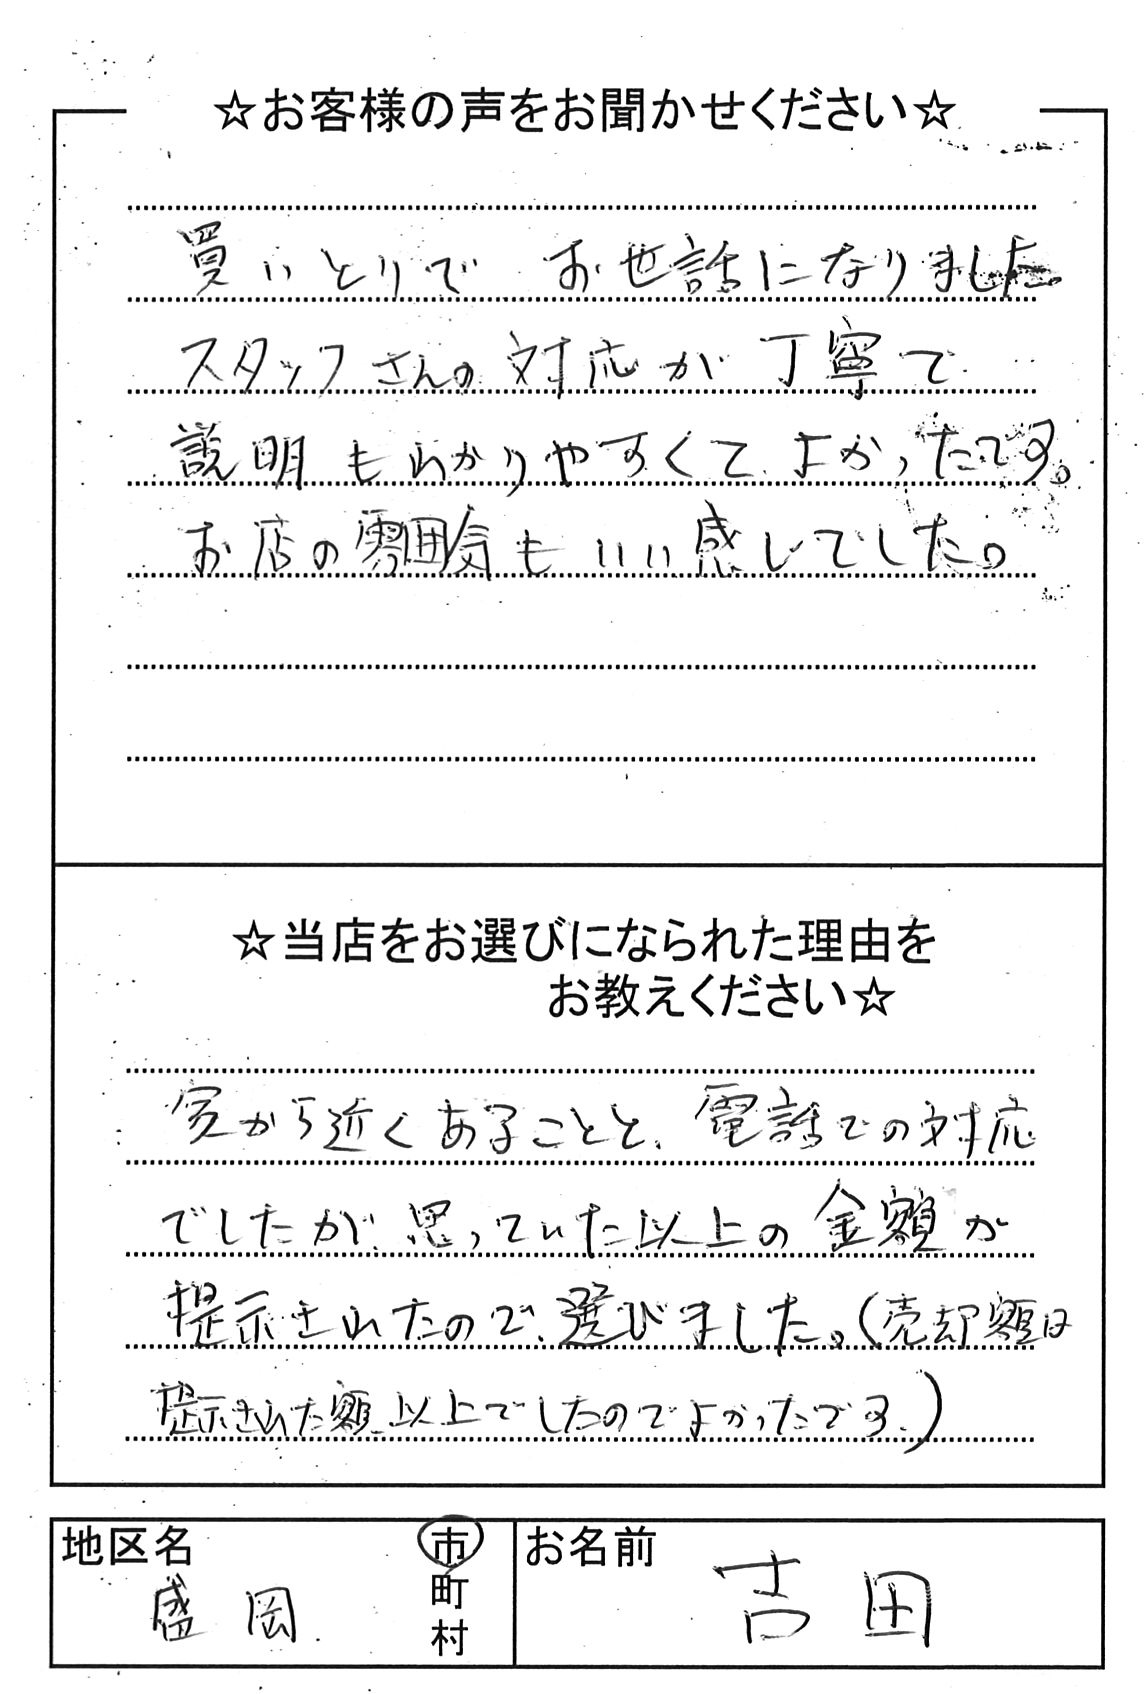 ☆お客様の声をお聞かせください☆
買いとりで お世話になりました
スタッフさんの対応が丁寧で
説明もわかりやすくて よかったです。
お店の雰囲気もいい感じでした。
☆当店をお選びになられた理由を
お教えください☆
家から近くあることと、電話での対応
でしたが、思っていた以上の金額が
提示されたので、選びました。(売却額は
提示された額以上でしたのでよかったです。)
地区名
盛岡
市
町
村
お名前
吉田